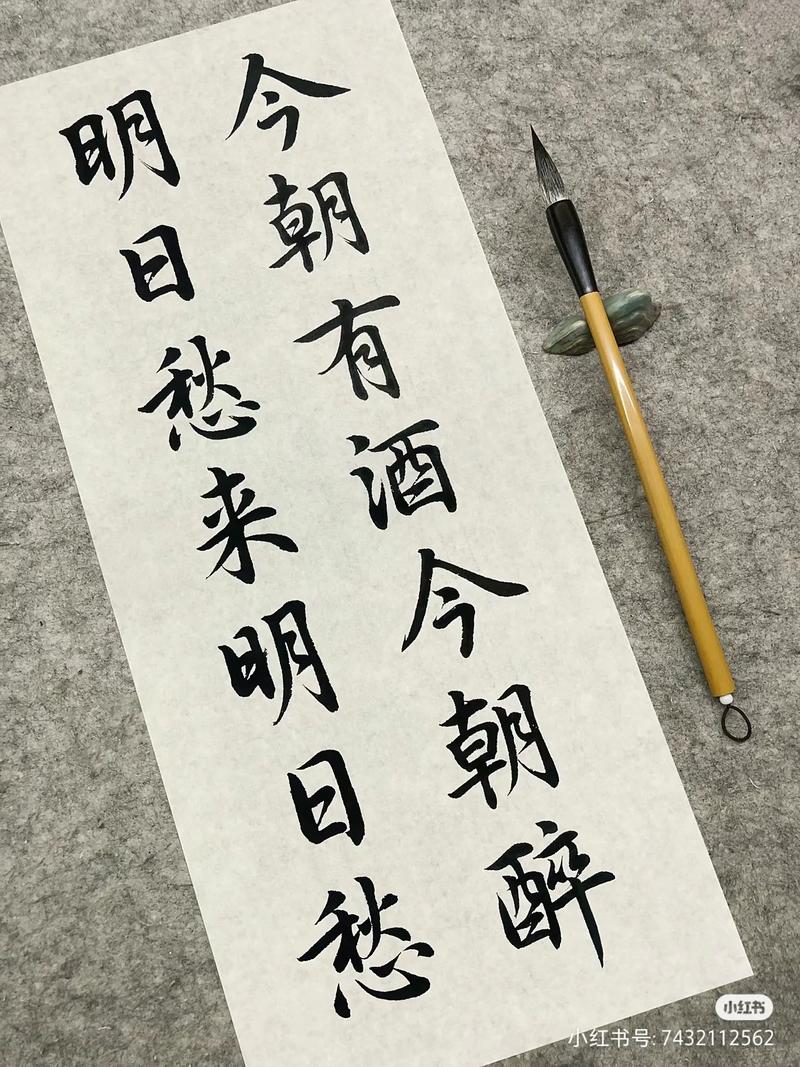 今朝有酒今朝醉
明日愁来明日愁
小红书
小红书号: 7432112562